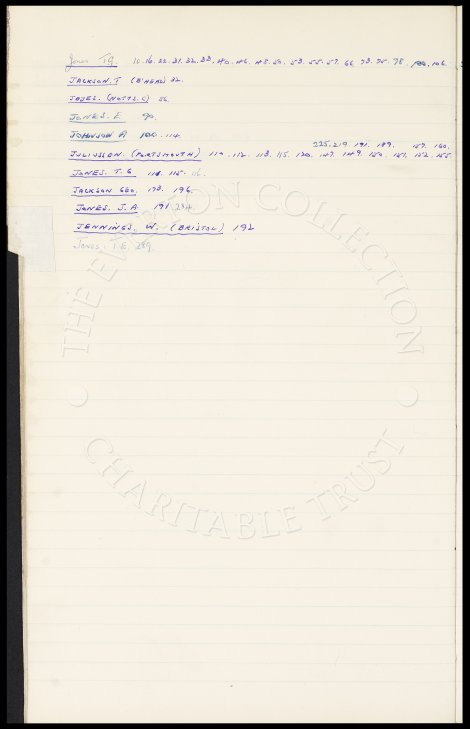 Jones T.G. 10. 16. 22. 31. 32. 33. 40. 46. 48. 50. 53. 55. 57. 66. 73. 75. 78. 100. 106.
JACKSON. T (B'HEAD) 32.
JONES. (NOTTS. C) 56.
JONES. E 90.
JOHNSON A 100. 114.
225. 219. 191. 189. 159. 160.
JULIUSSON. (PORTSMOUTH) 110. 112. 113. 115. 120. 147. 149. 150. 151. 152. 155.
JONES. T. G 114. 115. 116.
JACKSON GEO. 173. 196.
JONES. J. A. 191. 234.
JENNINGS. W. (BRISTOL) 192
JONES. T.E. 239.
THE EVERTON COLLECTION
CHARITABLE TRUST